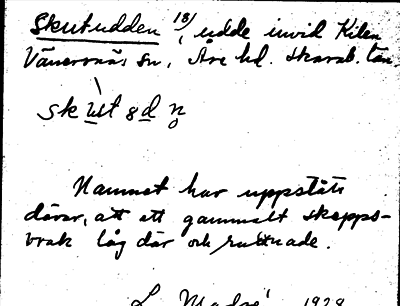 Skutudden 18/, udde invid Kilen
Vänersnäs sn, Åse hd. Skarab. län.
skut 8 d n
Namnet har uppstått
därav, att ett gammalt skepps-
vrak låg där och ruttnade.
L. Modré 1928